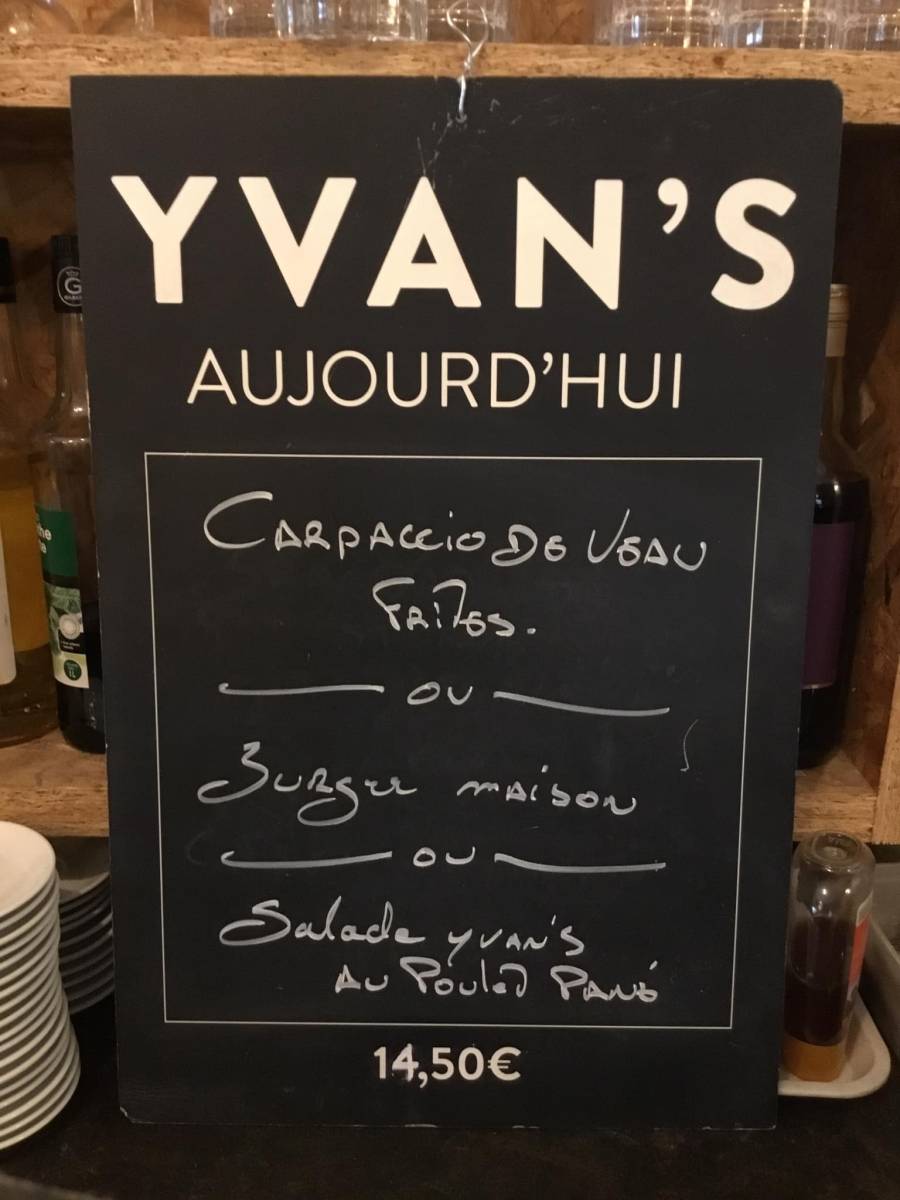 YVAN'S
AUJOURD'HUI
CARPACCIO DE VEAU
FRITES.
OU
BURGER MAISON
OU
Salade YVAN'S
AU POULET PANÉ
14,50€
G
1L